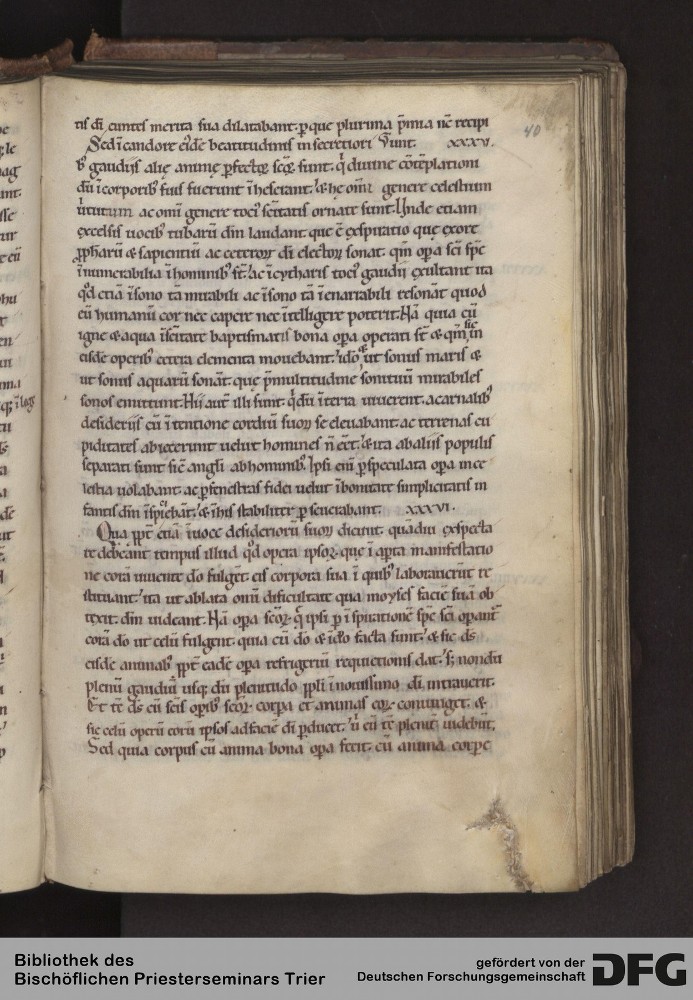 40
tis di, euntes merita sua dilatabant. ꝑ que plurima p̄mia n̄c recipi
Sed ī candore eidē beatitudinis in secretiori Sunt. xxxv.
b᷒ gaudiis alię animę ꝑfectę scę sunt. q̄ diuine cōtēplationi
dū ī corporib᷒ suis fuerunt īheserant. & he om̄i genere celestium
uirtutum ac omni genere toci᷒ sc̄itatis ornate sunt. Unde etiam
excelsis uocib᷒ tubarū dn̄m laudant que ē exspiratio que ex ore
ꝓphetarū & sapientiū ac ceteroꝝ di electoꝝ sonat. qm̄ opa sci sp̄c
īnumerabilia ī hominib᷒ st̄. ac ī cytharis toci᷒ gaudii exultant ita
qd̄ etiā ī sono tā mirabili ac ī sono tā ī enarrabili resonāt quod
eū humanū cor nec capere nec ītelligere poterit. Nā quia cū
igne & aqua ī sc̄itate baptismatis bona opa operati st̄ & qm̄ sic in
eisdē operib᷒ cetera elementa mouebant. idō & ut sonus maris &
ut sonus aquarū sonāt. que p̄ multitudine sonituū mirabiles
sonos emittunt. Hii aut̄ illi sunt. q̄ dū ī terra uiuerent. a carnalib᷒
desideriis cū ī tentione cordiū suoꝝ se eleuabant. ac terrenas cu
piditates abiecerunt uelut homines n̄ eēt. & ita ab aliis populis
separati sunt sic angli ab hominib᷒. Ipsi eni ꝑ speculata opa in ce
lestia uolabant. ac ꝑ fenestras fidei uelut ī bonitate simplicitatis in
fantis dn̄m īspiciebāt. & ī his stabiliter ꝑseuerabant. xxxvi.
Qua ꝓpt̄ etiā ī uoce desiderioꝝ suoꝝ dicunt. quādiu exspecta
re debeant tempus illud qd̄ opera ipsoꝝ. que ī aꝑta manifestatio
ne corā uiuente do fulgēt. eis corpora sua ī quib᷒ laborauerūt re
stituant. ita ut ablata omni dificultate qua moyses faciē suā ob
texit. dn̄m uideant. Nā opa scoꝝ. q̄ ipsi ꝑ īspirationē sp̄c sci opant᷑
corā do ut celū fulgent. quia cū do & ī do facta sunt. & sic ds̄
eisdē animab᷒ ꝓpt̄ eadē opa refrigeriū requietionis dat. s; nondū
plenū gaudiū usq; dū plenitudo ppl̄i ī nouissimo di intrauerit.
Et tc̄ ds̄ cū scis opib᷒ scoꝝ. corpa et animas eoꝝ coniunget. &
sic celū operū eorū ipsos ad faciē di ꝑducet. u᷒ eū tc̄ plenit̄ uidebūt.
Sed quia corpus cū anima bona opa fecit. cū anima corpe
Bibliothek des
Bischöflichen Priesterseminars Trier
gefördert von der
Deutschen Forschungsgemeinschaft
DFG